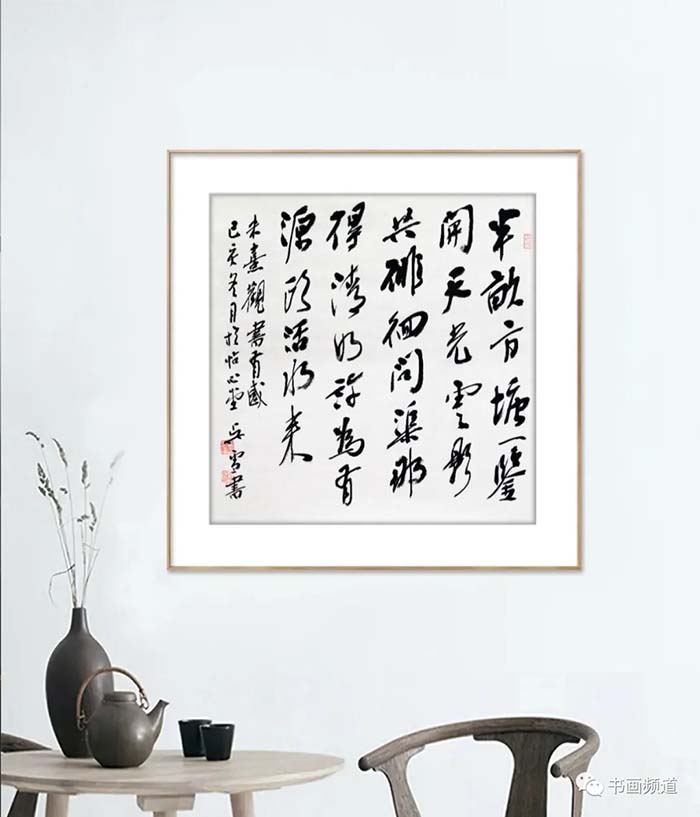 半畝方塘一鑒
開天光雲影
共徘徊問渠那
得清如許為有
源頭活水來
朱熹觀書有感
己亥冬月於怡心堂 書
书画频道